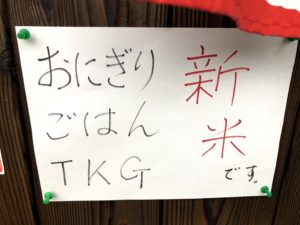 新米です。
おにぎり
ごはん
TKG